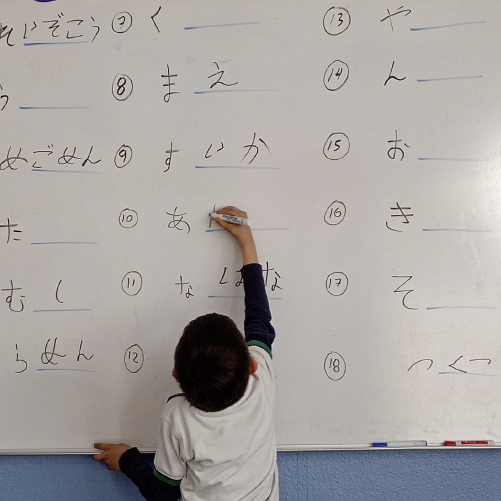 れいぞうこ
⑦ く
⑬ や
う
⑧ まえ
⑭ ん
めごめん
⑨ すいか
⑮ お
た
⑩ あ
⑯ き
むし
⑪ なはな
⑰ そ
らめん
⑫
⑱ つくつ